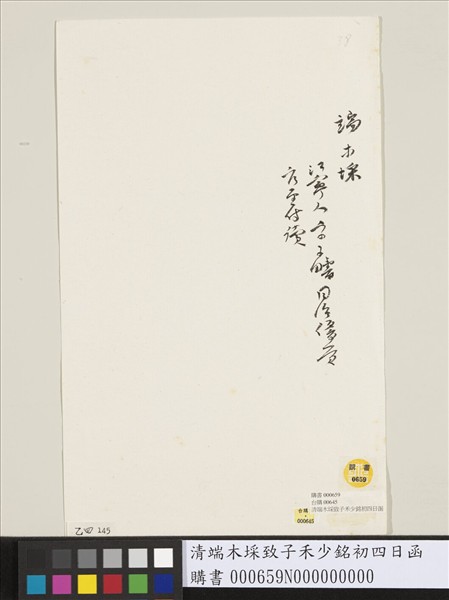 端木埰
江寧人字子疇同治優貢
官至侍讀
購書
0659
購書 000659
台購 00645
清端木埰致子禾少銘初四日函
台購
000645
乙四 245
清端木埰致子禾少銘初四日函
購書 000659N000000000